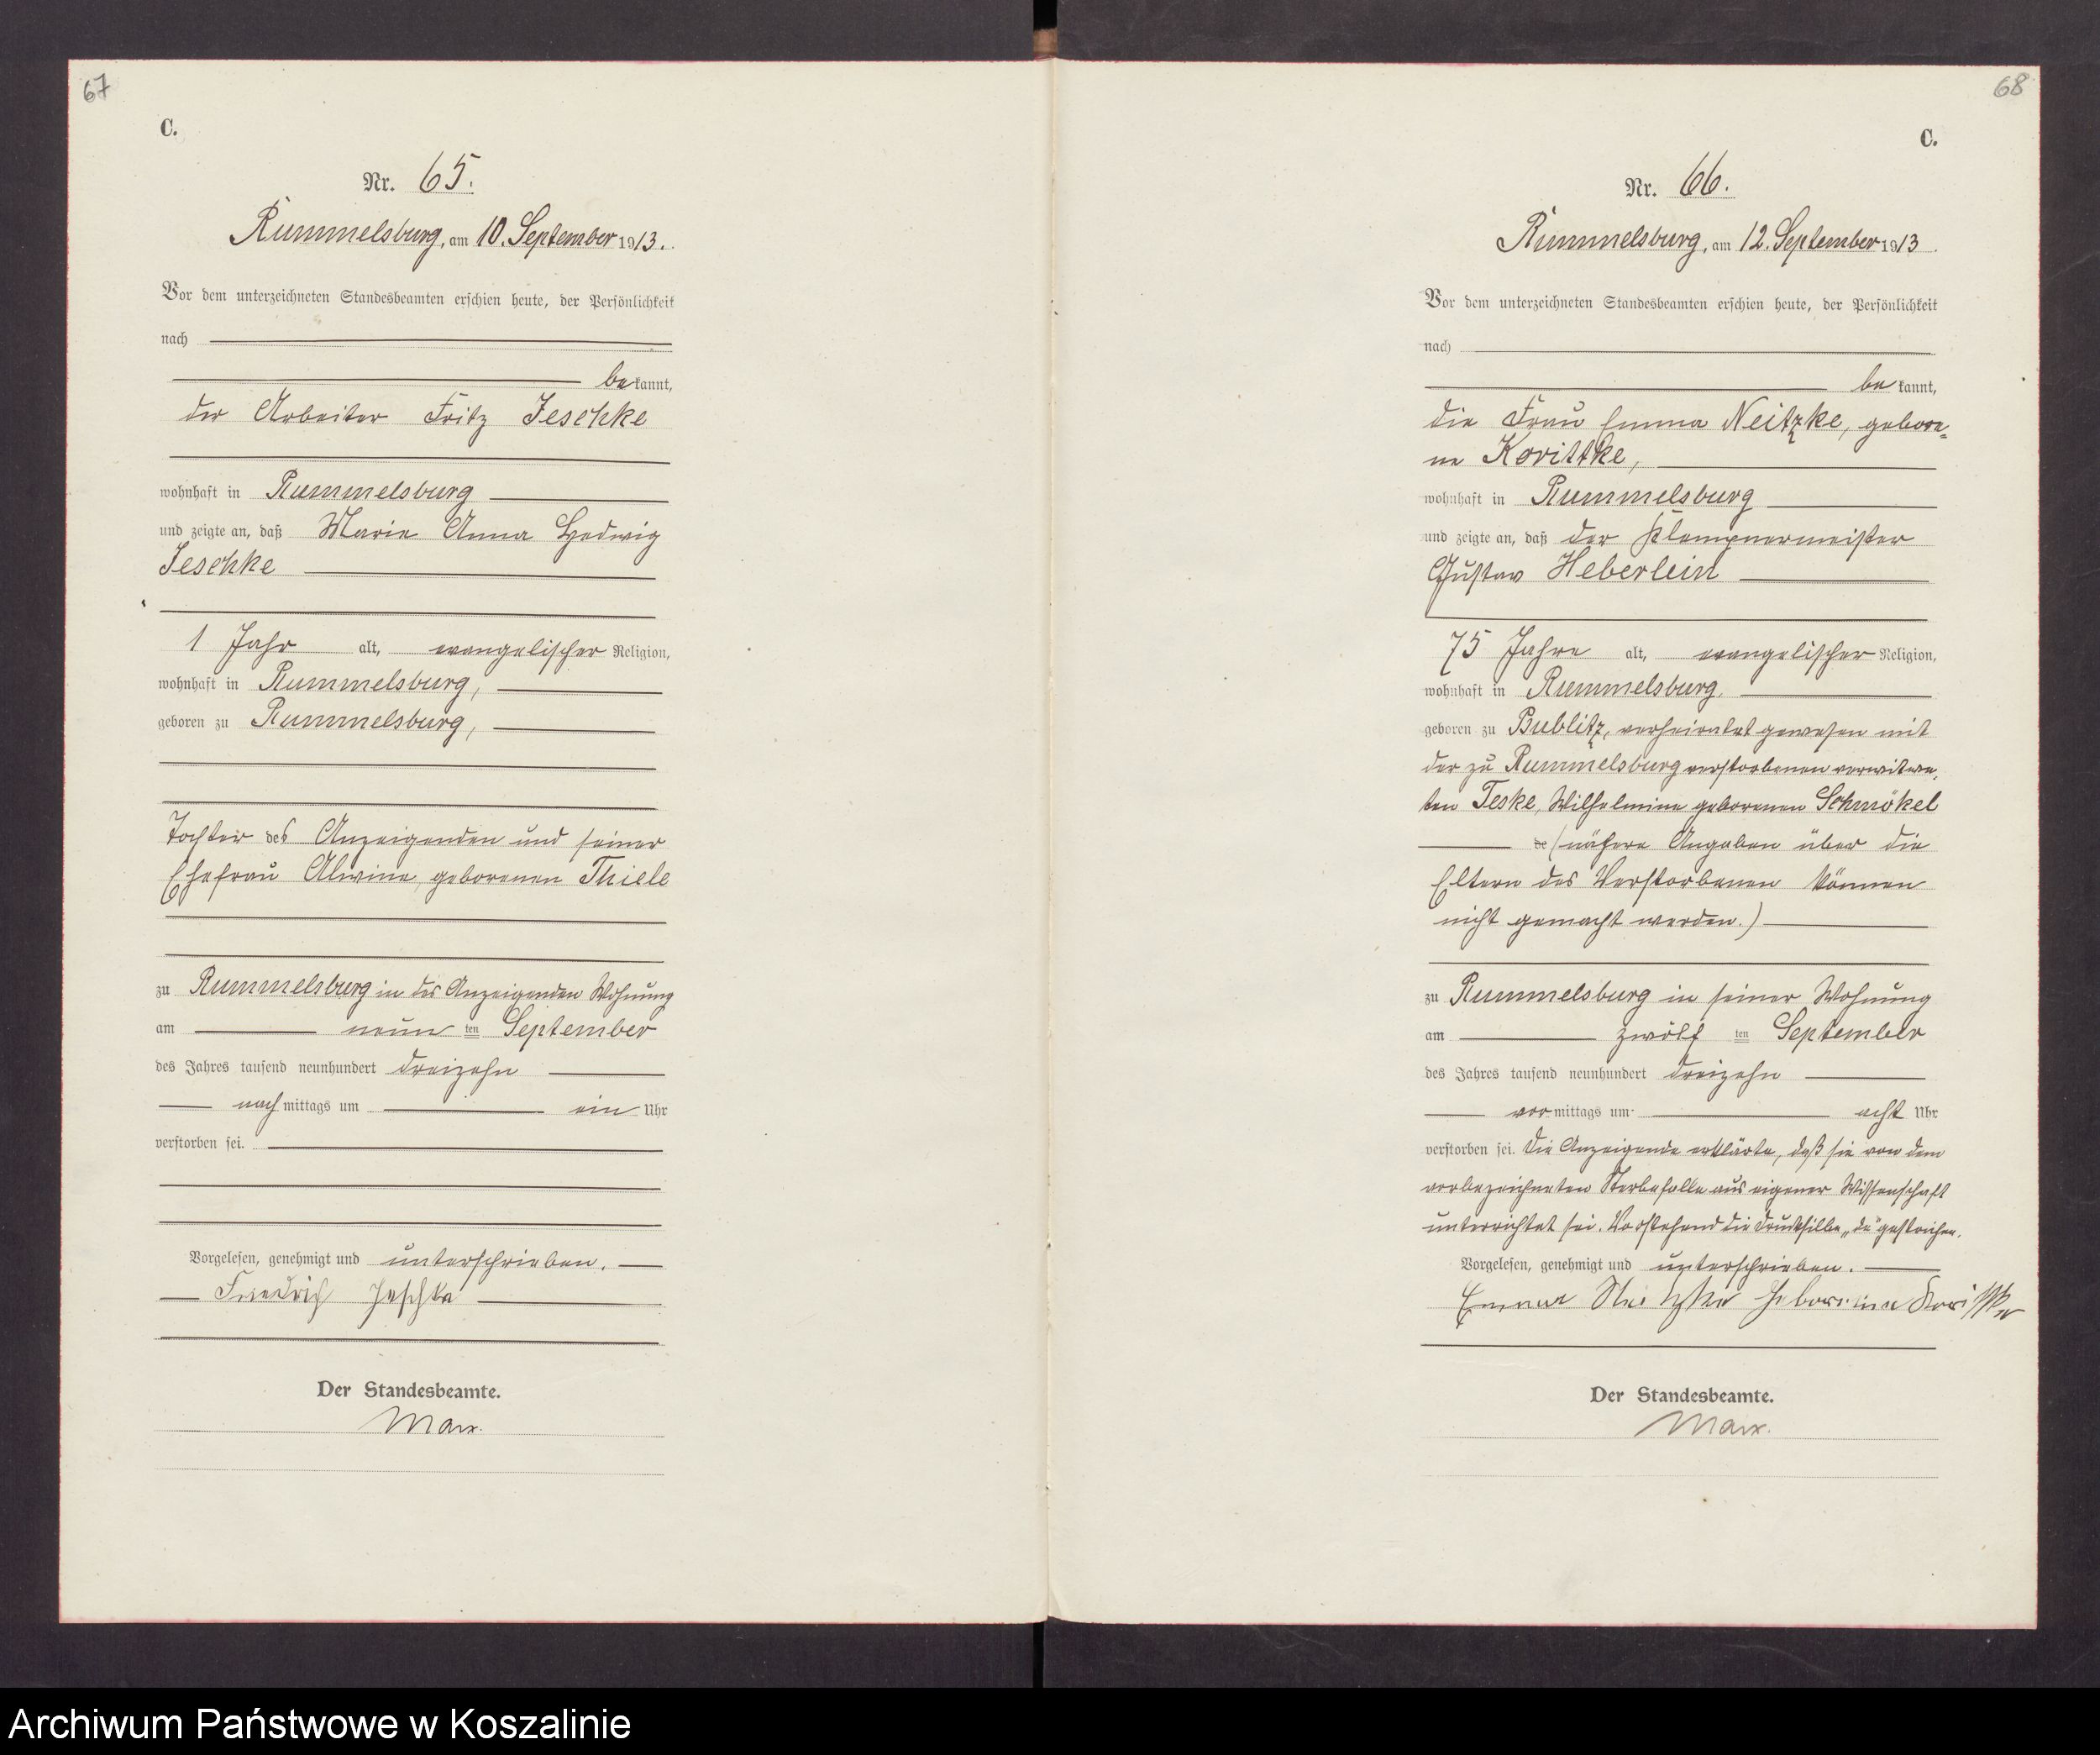 67
C.
Nr. 65.
Rummelsburg, am 10. September 1913.
Vor dem unterzeichneten Standesbeamten erschien heute, der Persönlichkeit
nach
bekannt,
der Arbeiter Fritz Jeschke
wohnhaft in Rummelsburg
und zeigte an, daß Marie Anna Hedwig
Jeschke
1 Jahr alt, evangelischer Religion,
wohnhaft in Rummelsburg,
geboren zu Rummelsburg,
Tochter des Anzeigenden und seiner
Ehefrau Alwine, geborenen Thiele
zu Rummelsburg in des Anzeigenden Wohnung
am neun ten September
des Jahres tausend neunhundert dreizehn
nachmittags um ein Uhr
verstorben sei.
Vorgelesen, genehmigt und unterschrieben.
Friedrich Jeschke
Der Standesbeamte.
Marx.
68
C.
Nr. 66.
Rummelsburg, am 12. September 1913.
Vor dem unterzeichneten Standesbeamten erschien heute, der Persönlichkeit
nach
bekannt,
die Frau Emma Neitzke, gebore-
ne Korittke,
wohnhaft in Rummelsburg
und zeigte an, daß der Klempnermeister
Gustav Heberlein
75 Jahre alt, evangelischer Religion,
wohnhaft in Rummelsburg,
geboren zu Bublitz, verheiratet gewesen mit
der zu Rummelsburg verstorbenen verwitwe-
ten Teske, Wilhelmine geborenen Schmökel
de (nähere Angaben über die
Eltern des Verstorbenen können
nicht gemacht werden.)
zu Rummelsburg in seiner Wohnung
am zwölf ten September
des Jahres tausend neunhundert dreizehn
vormittags um acht Uhr
verstorben sei. Die Anzeigende erklärte, daß sie von dem
vorbezeichneten Sterbefalle aus eigener Wissenschaft
unterrichtet sei. Vorstehend die Drucksilbe „de" gestrichen.
Vorgelesen, genehmigt und unterschrieben.
Emma Neitzke geborene Korittke
Der Standesbeamte.
Marx.
Archiwum Państwowe w Koszalinie